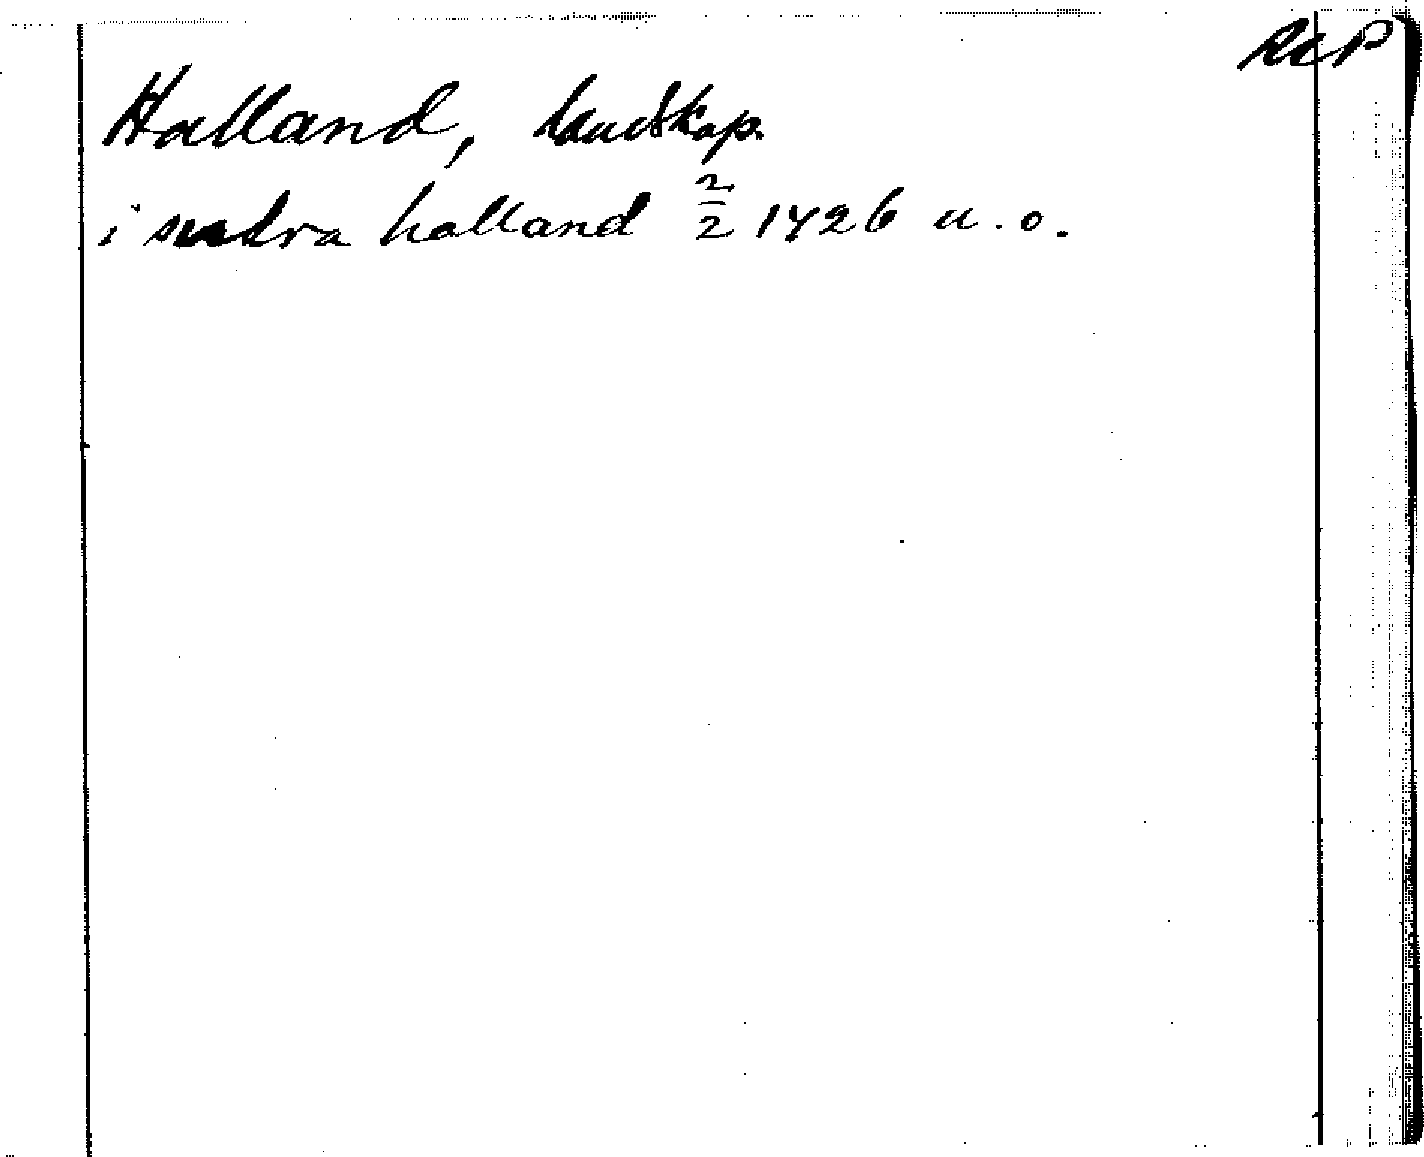 RAP
Halland, landskap.
i sudra halland 2/2 1426 u. o.